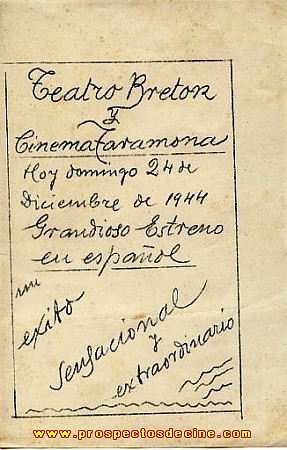 Teatro Breton
y
Cinema Taramona
Hoy domingo 24 de
Diciembre de 1944
Grandioso Estreno
en español
un
exito
sensacional
y
extraordinario
www.prospectosdecine.com